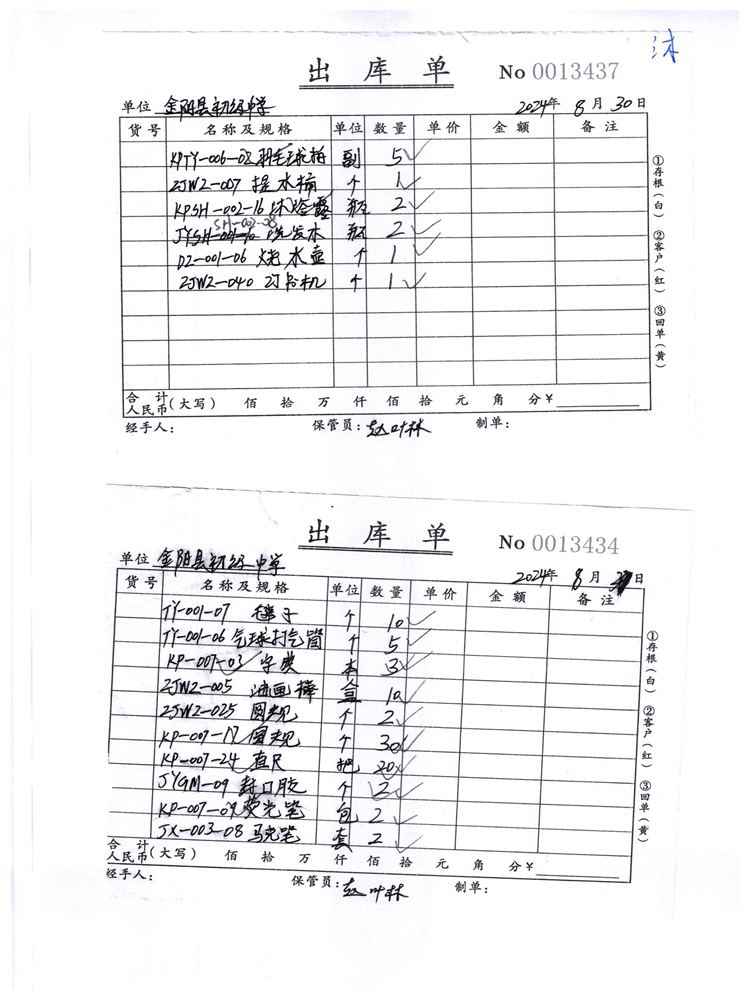 沐
出库单 No 0013437
单位 金阳县初级中学 2024年 8月 30日
货号 名称及规格 单位 数量 单价 金额 备注
KPTY-006-08 羽毛球拍 副 5✓
ZJWZ-007 提水桶 个 1✓
KPSH-002-16 沐浴露 瓶 2✓
SH-002-08
JYSH-001-10 洗发水 瓶 2✓
DZ-001-06 烧水壶 个 1✓
ZJWZ-040 订书机 个 1✓
合计人民币(大写) 佰 拾 万 仟 佰 拾 元 角 分¥
经手人: 保管员:赵叶林 制单:
①存根(白) ②客户(红) ③回单(黄)
出库单 No 0013434
单位 金阳县初级中学 2024年 8月 日
货号 名称及规格 单位 数量 单价 金额 备注
TY-001-07 毽子 个 10✓
TY-001-06 气球打气筒 个 5✓
KP-007-03 字典 本 3✓
ZJWZ-005 油画棒 盒 10✓
ZJWZ-025 圆规 个 2✓
KP-007-17 圆规 个 30✓
KP-007-24 直尺 把 20✓
JYGM-09 封口胶 个 2✓
KP-007-09 荧光笔 包 2✓
JX-003-08 马克笔 套 2✓
合计人民币(大写) 佰 拾 万 仟 佰 拾 元 角 分¥
经手人: 保管员:赵叶林 制单:
①存根(白) ②客户(红) ③回单(黄)